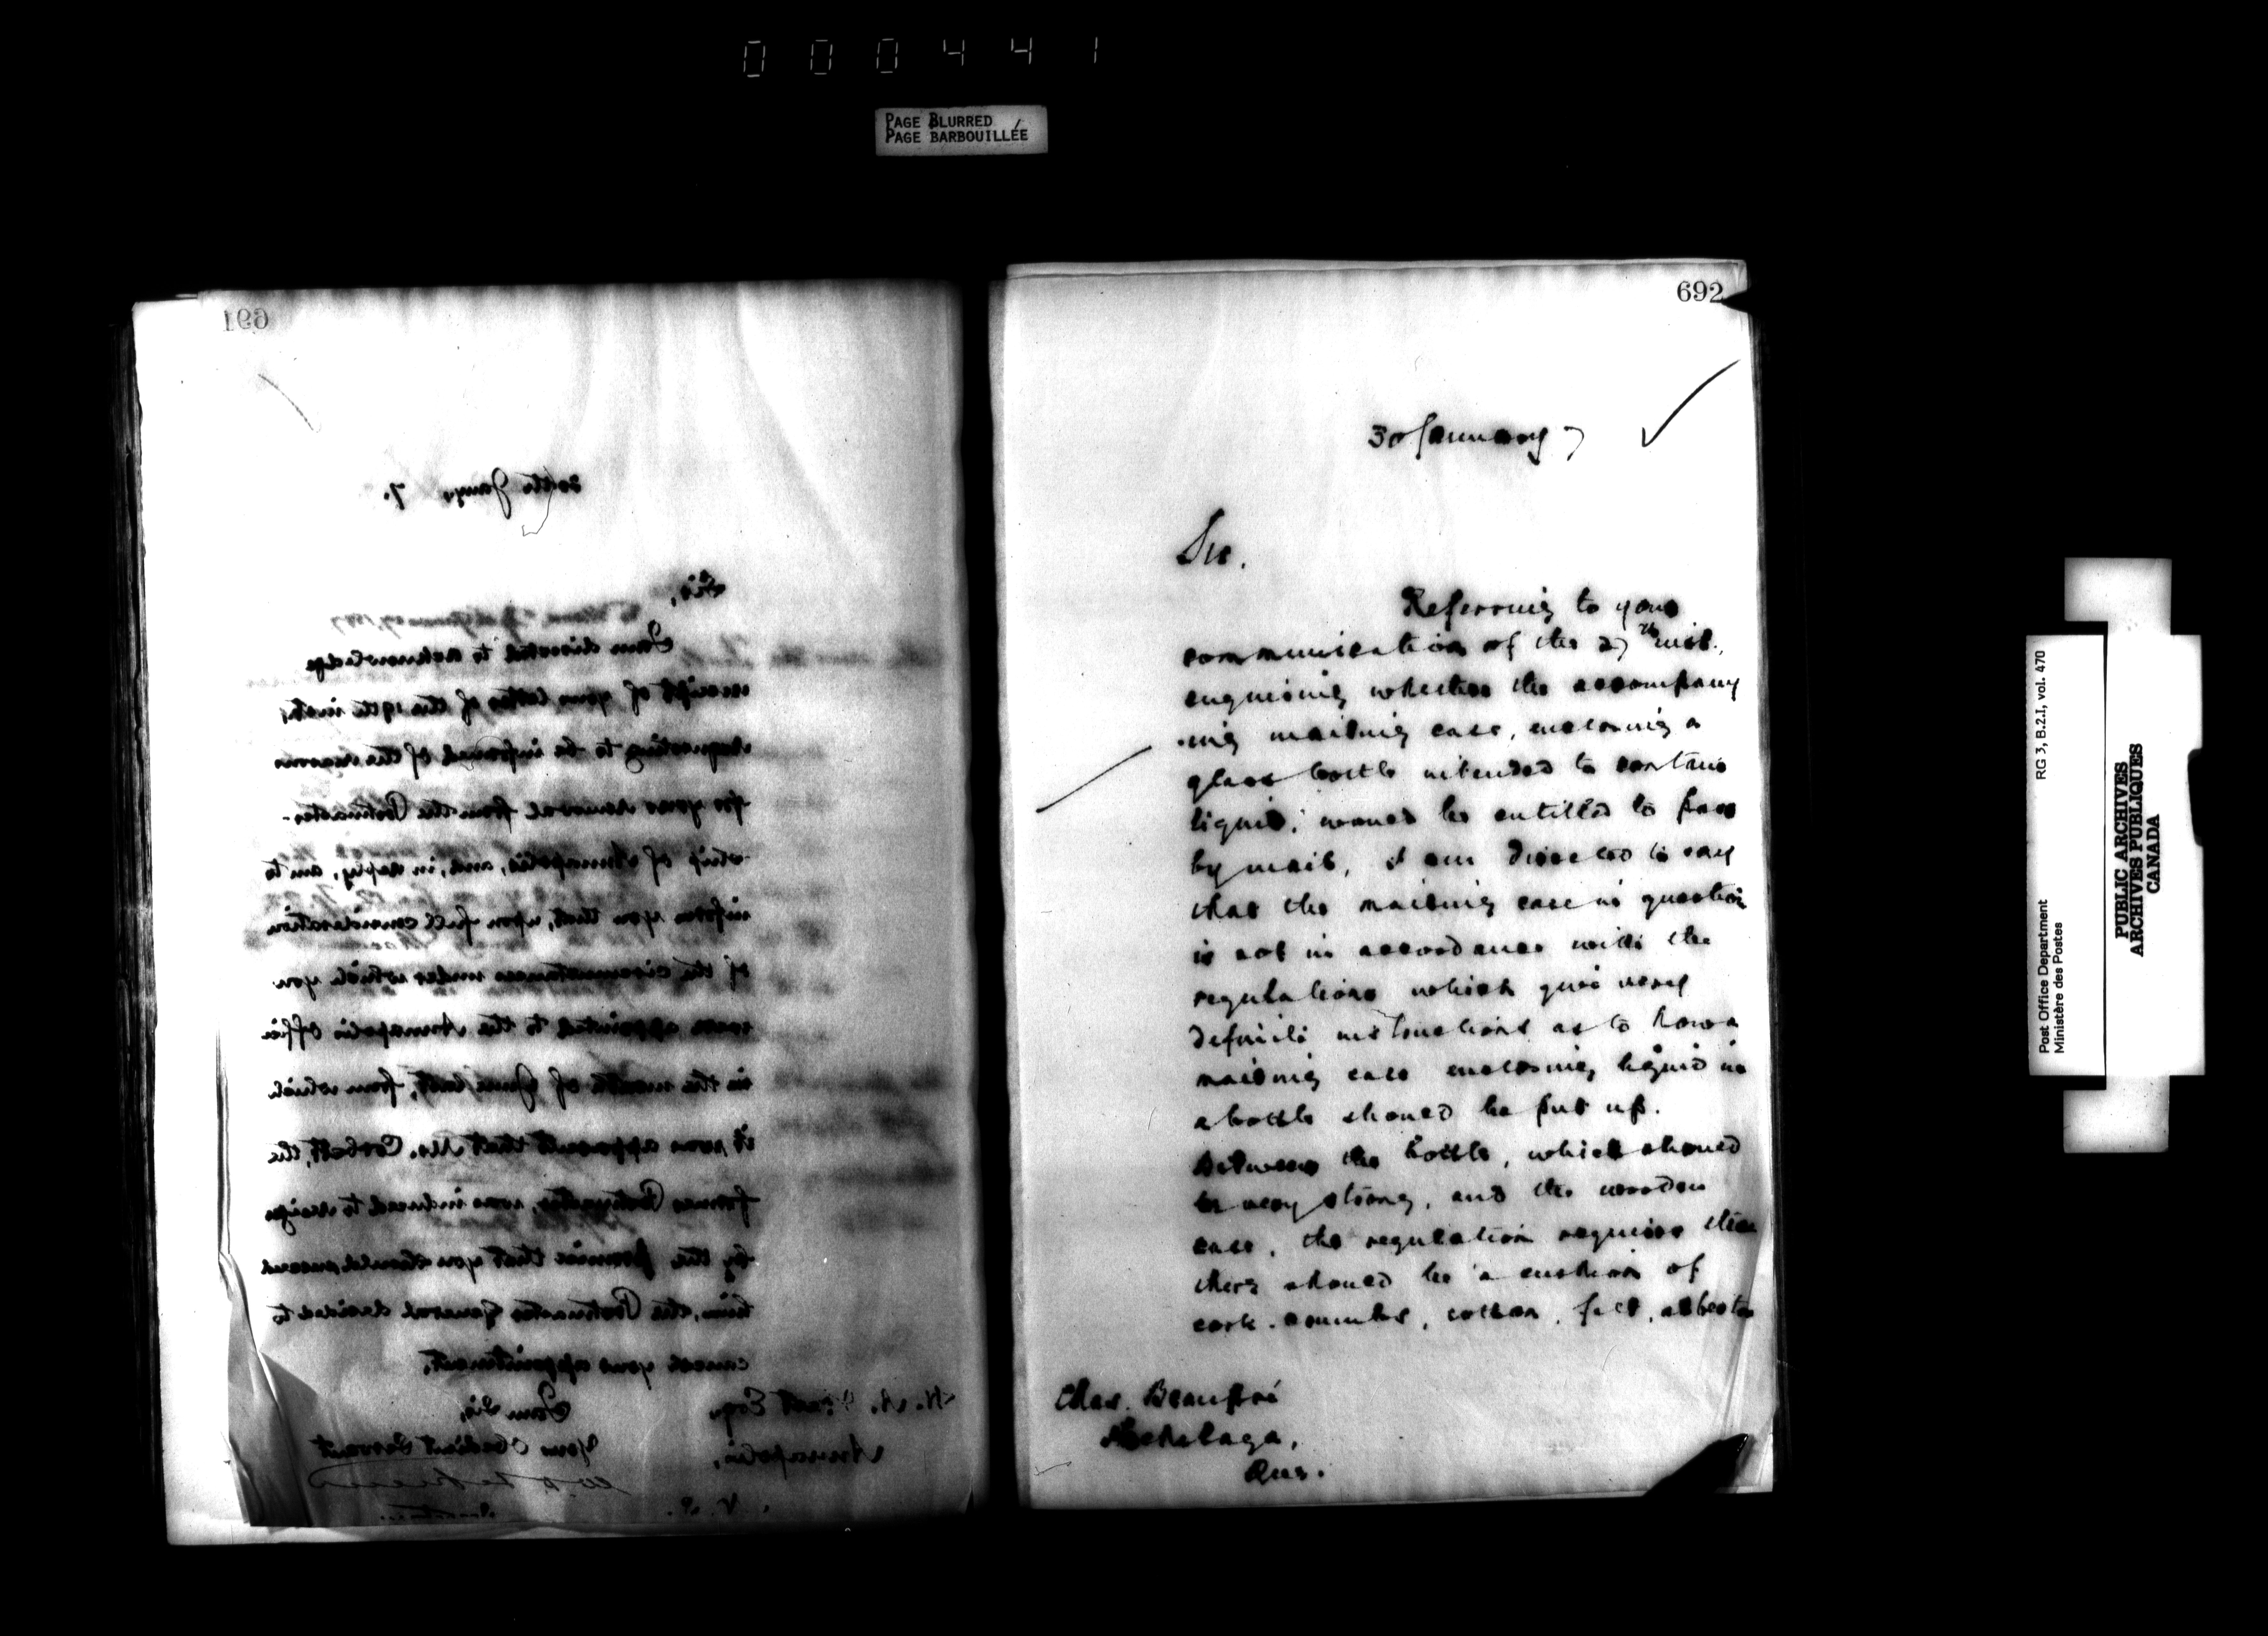 000441
PAGE BLURRED
PAGE BARBOUILLÉE
691
30th Jany. 7.
Sir,
I am directed to acknowledge
receipt of your letter of the 19th inst,
requesting to be informed of the reasons
for your removal from the Postmaster-
ship of Annapolis, and, in reply, am to
inform you that, upon full consideration
of the circumstances under which you
were appointed to the Annapolis office
in the month of June last, from which
it was apparent that Mr. Corbitt, the
former Postmaster, was induced to resign
by the promise that you should succeed
him, the Postmaster General decided to
cancel your appointment.
I am Sir,
Your Obedient Servant
Esq.
Annapolis,
N. S.
692
30 January 7
Sir.
Referring to your
communication of the 27th inst.,
enquiring whether the accompany
-ing mailing case, enclosing a
glass bottle intended to contain
liquid, would be entitled to pass
by mail, I am directed to say
that the mailing case in question
is not in accordance with the
regulations which give very
definite instructions as to how a
mailing case enclosing liquid in
a bottle should be put up.
Between the bottle, which should
be very strong, and the wooden
case, the regulation requires that
there should be a cushion of
cork crumbs, cotton, felt, asbestos
Chas. Beaupré
Hochelaga,
Que.
Post Office Department
Ministère des Postes
RG 3, B.2.I, vol. 470
PUBLIC ARCHIVES
ARCHIVES PUBLIQUES
CANADA